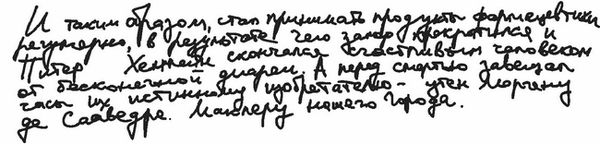 И таким образом, стал принимать продукты фармацевтики
регулярно, в результате чего запор прекратился и
Питер Хемлейн скончался счастливым человеком
от бесконечной диареи. А перед смертью завещал
часы их истинному изобретателю - утен Мюргену
де Сааведра. Маклеру нашего города.